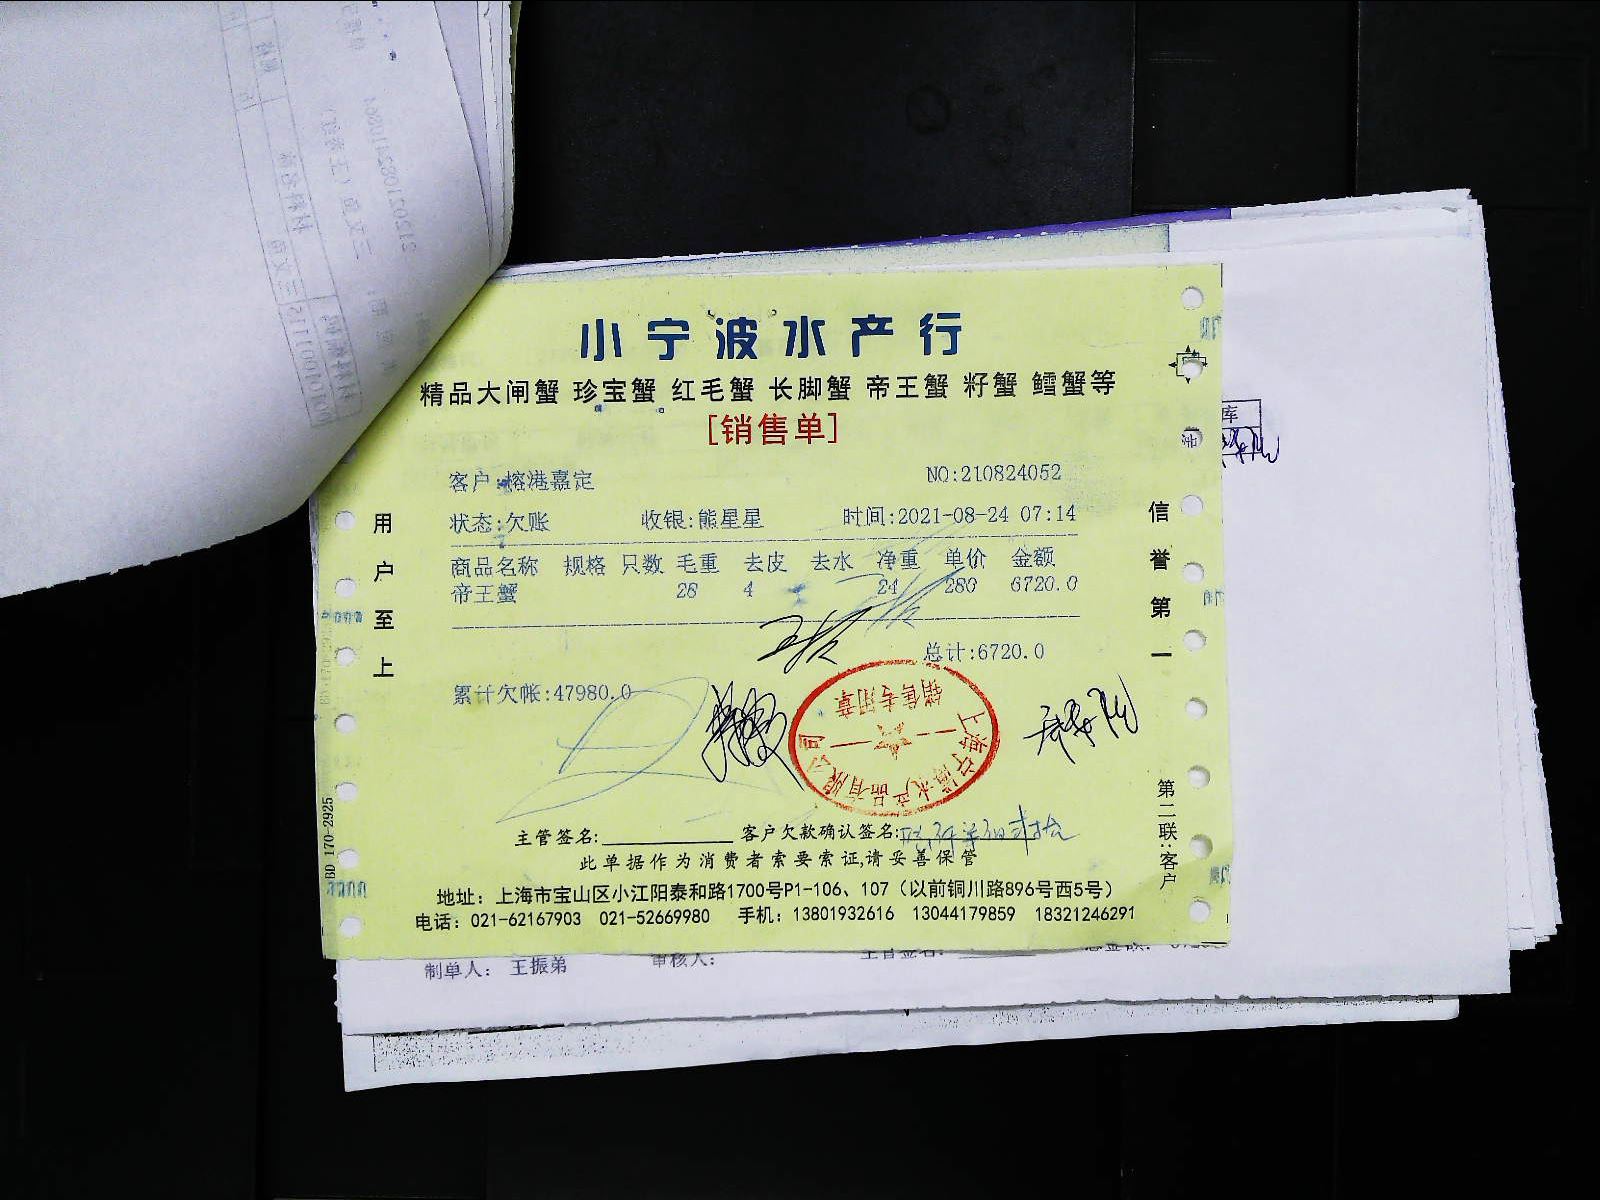 小宁波水产行
精品大闸蟹 珍宝蟹 红毛蟹 长脚蟹 帝王蟹 籽蟹 鳕蟹等
[销售单]
客户:榕港嘉定 NO:210824052
状态:欠账 收银:熊星星 时间:2021-08-24 07:14
商品名称 规格 只数 毛重 去皮 去水 净重 单价 金额
帝王蟹 28 4 24 280 6720.0
总计:6720.0
累计欠帐:47980.0
用户至上
信誉第一
第二联:客户
BD 170-2925
销售专用章
主管签名: 客户欠款确认签名:
此单据作为消费者索要索证,请妥善保管
地址：上海市宝山区小江阳泰和路1700号P1-106、107（以前铜川路896号西5号）
电话：021-62167903 021-52669980 手机：13801932616 13044179859 18321246291
制单人： 王振弟 审核人： 主管签名：
库